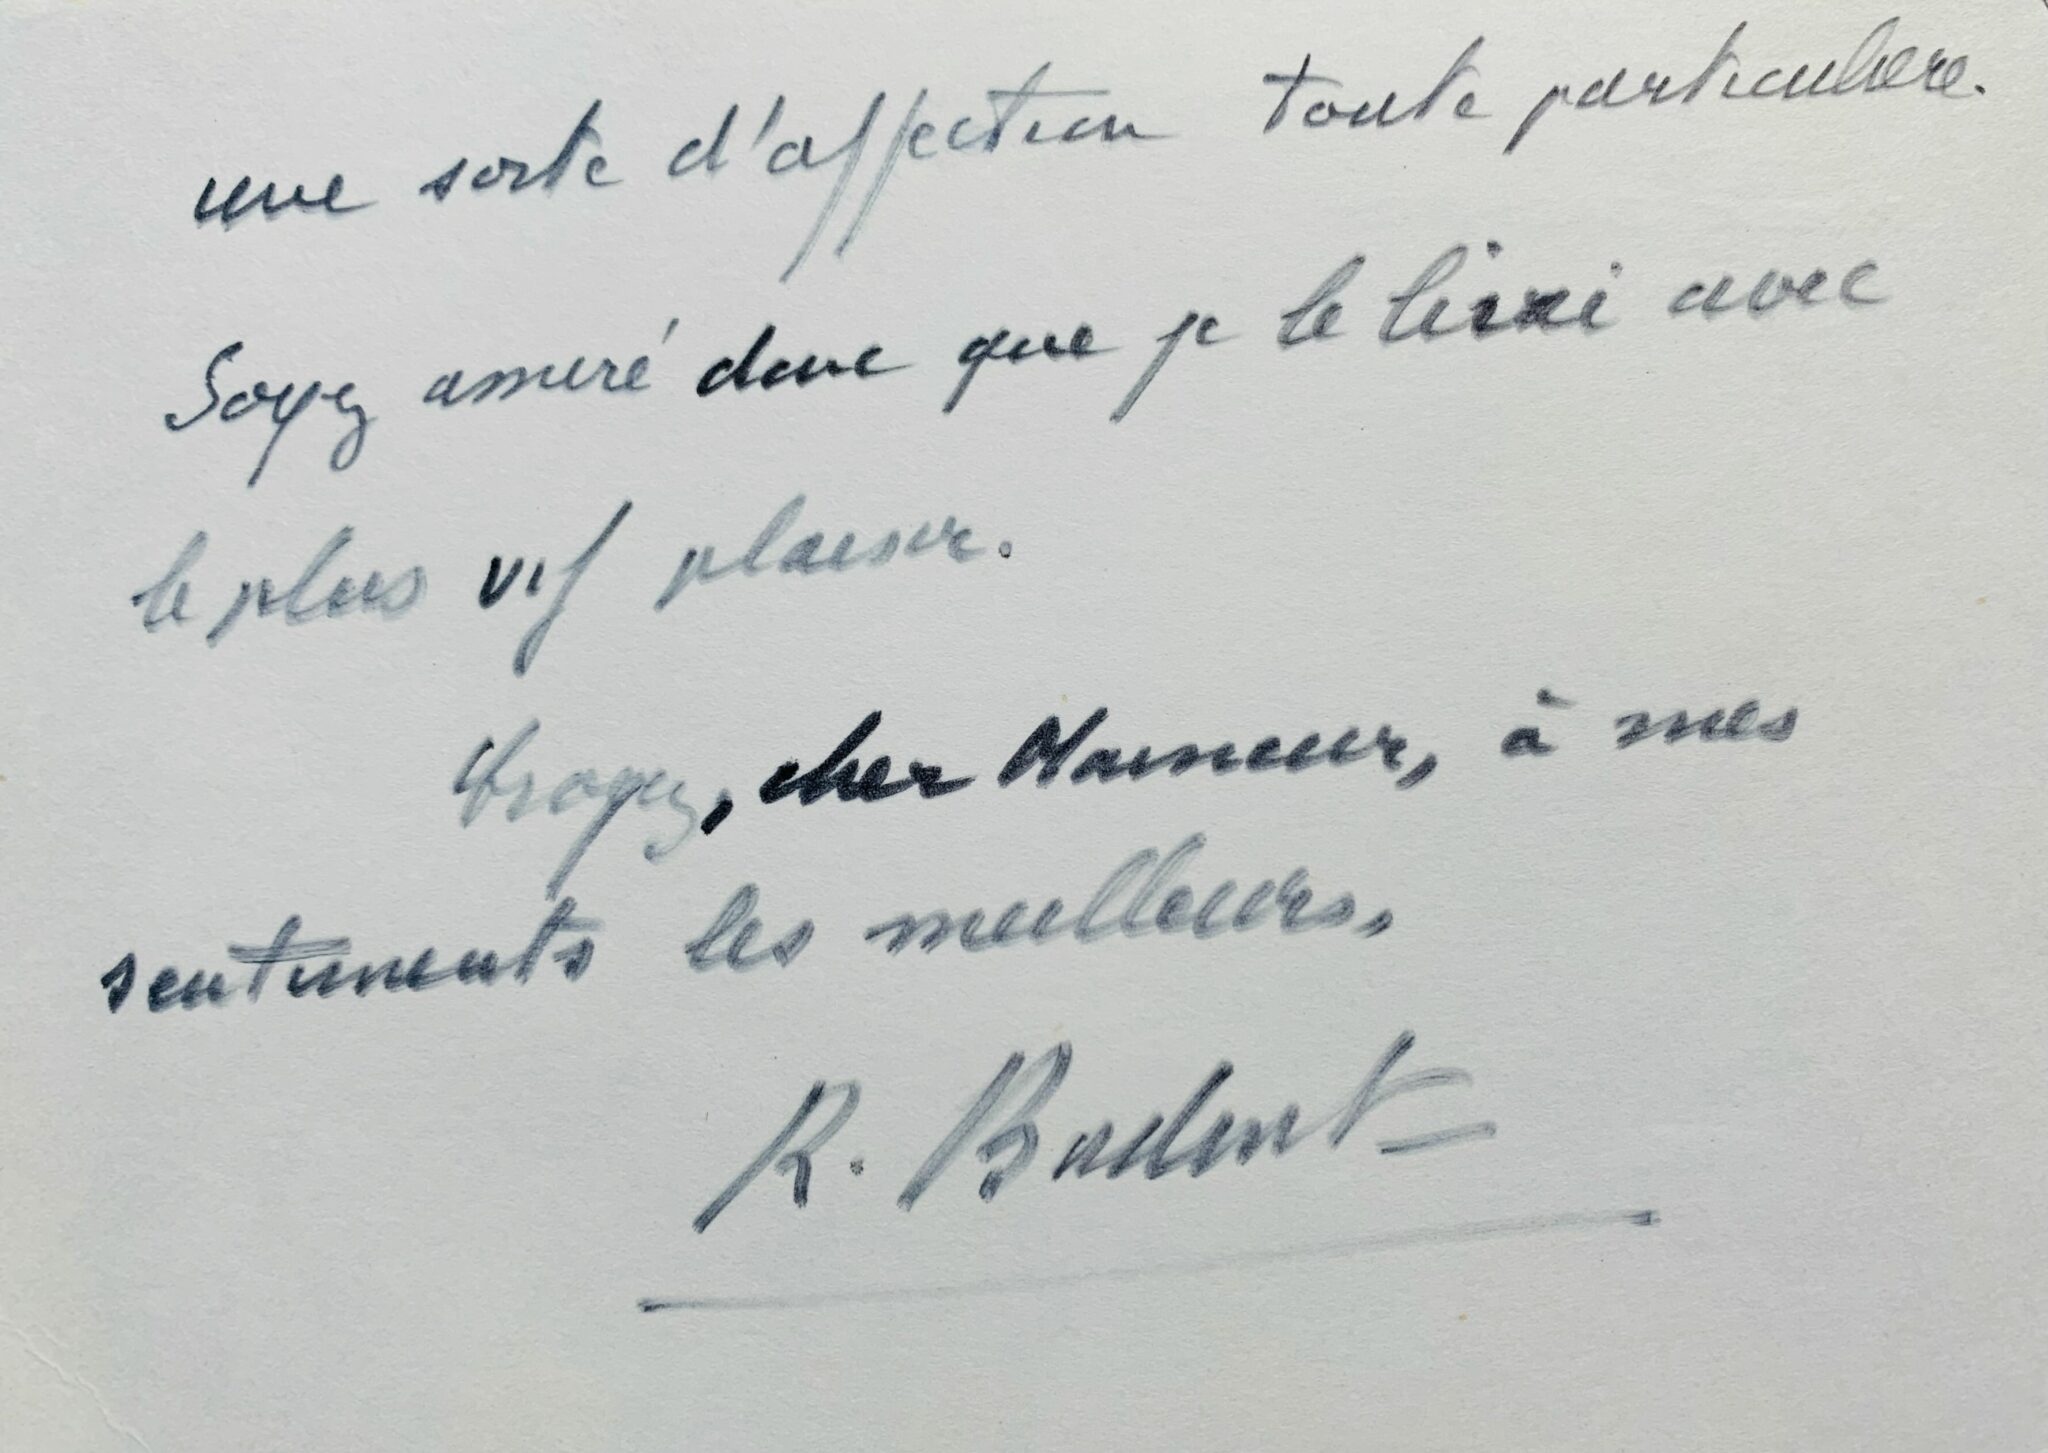 une sorte d'affection toute particulière.
Soyez assuré donc que je le lirai avec
le plus vif plaisir.
Croyez, cher Monsieur, à mes
sentiments les meilleurs.
R.